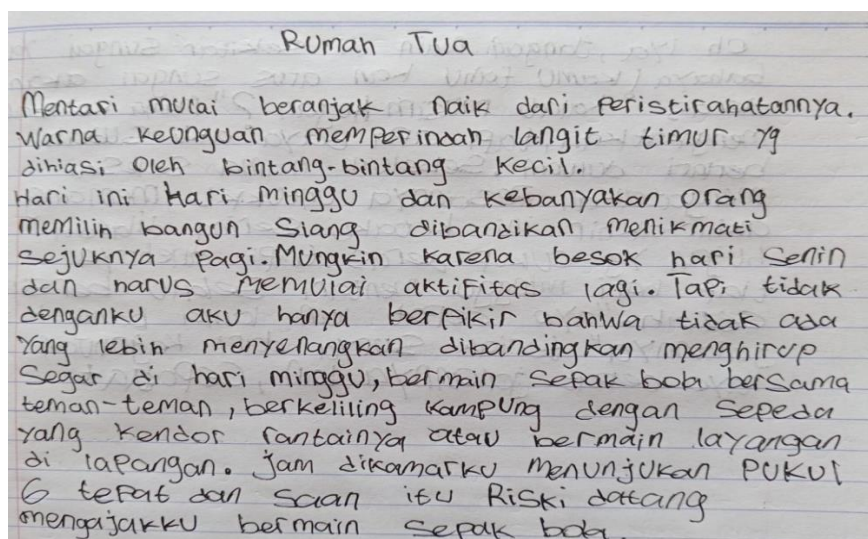 Rumah Tua
Mentari mulai beranjak naik dari peristirahatannya.
Warna keunguan memperindah langit timur yg
dihiasi oleh bintang-bintang kecil.
Hari ini Hari minggu dan kebanyakan orang
memilih bangun siang dibandikan menikmati
sejuknya pagi. Mungkin karena besok hari senin
dan harus memulai aktifitas lagi. Tapi tidak
denganku aku hanya berfikir bahwa tidak ada
yang lebih menyenangkan dibandingkan menghirup
Segar di hari minggu, bermain sepak bola bersama
teman-teman, berkeliling kampung dengan sepeda
yang kendor rantainya atau bermain layangan
di lapangan. jam dikamarku menunjukan pukul
6 tepat dan saan itu Riski datang
mengajakku bermain sepak bola.